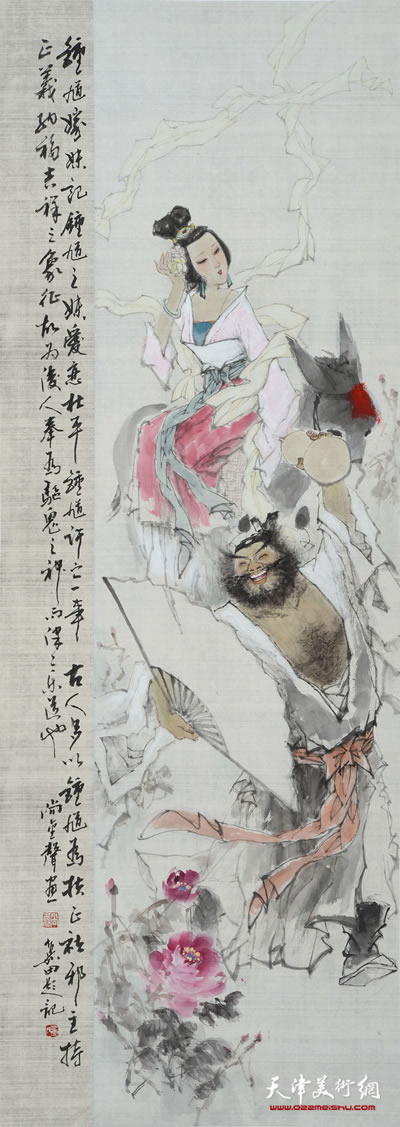 鍾馗嫁妹記鍾馗之妹愛戀杜平鍾馗許之一 古人多以鍾馗為扶正祛邪主持
正義納福吉祥之象征故為後人奉為驅鬼之神而津津樂道也
尚金聲畫
題記
天津美術網
www.022meishu.com